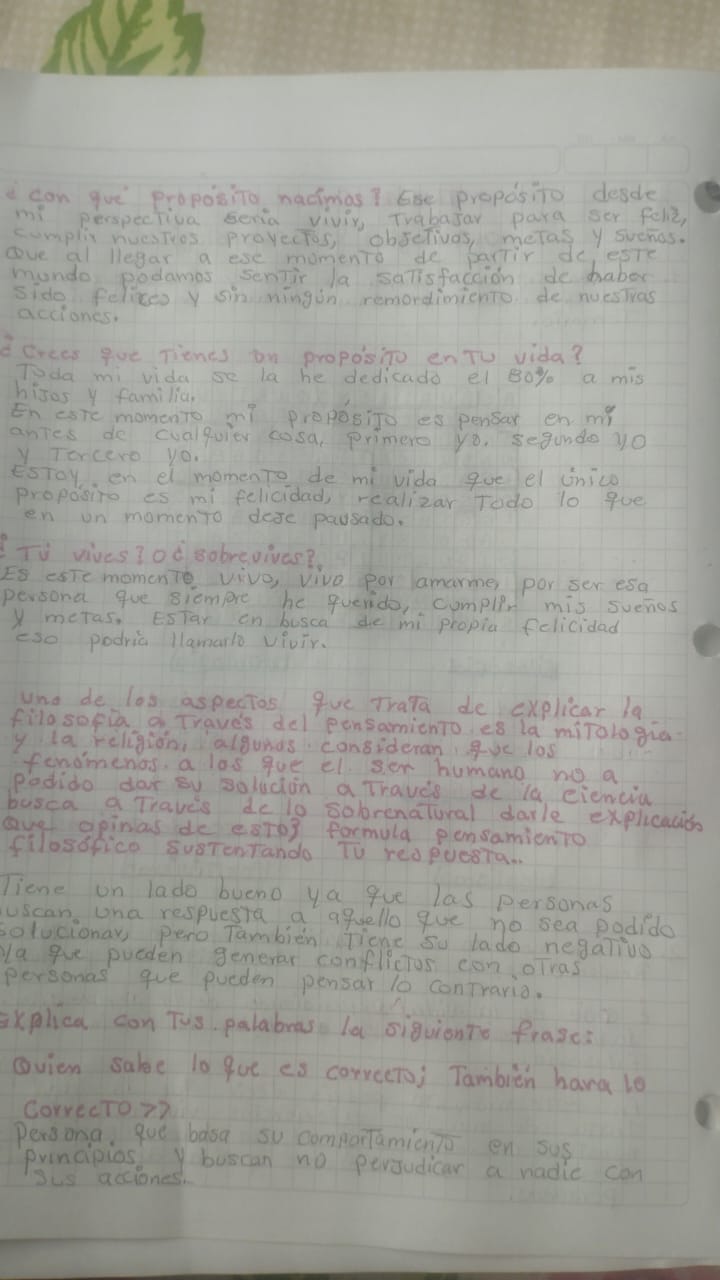 ¿ con que proposito nacimos? Ese proposito desde
mi perspectiva seria vivir, Trabajar para ser feliz,
cumplir nuestros proyectos, objetivos, metas y sueños.
Que al llegar a ese momento de partir de este
mundo podamos sentir la satisfacción de haber
sido felices y sin ningún remordimiento de nuestras
acciones.
¿ Crees que Tienes un proposito en Tu vida?
Toda mi vida se la he dedicado el 80% a mis
hijos y familia.
En este momento mi proposito es pensar en mi
antes de cualquier cosa, primero yo, segundo yo
y Tercero yo.
Estoy en el momento de mi vida que el único
proposito es mi felicidad, realizar Todo lo que
en un momento deje pausado.
¿ Tú vives? O ¿ sobrevives?
Es este momento vivo, vivo por amarme, por ser esa
persona que siempre he querido, cumplir mis sueños
y metas. Estar en busca de mi propia felicidad
eso podria llamarlo vivir.
uno de los aspectos que Trata de explicar la
filosofia a Través del pensamiento es la mitologia
y la religión, algunos consideran que los
fenómenos a los que el ser humano no a
podido dar su solución a Través de la ciencia
busca a Través de lo sobrenatural darle explicación
Que opinas de esto; formula pensamiento
filosófico sustentando Tu respuesta..
Tiene un lado bueno ya que las personas
buscan una respuesta a aquello que no sea podido
solucionar, pero También Tiene su lado negativo
ya que pueden generar conflictos con otras
personas que pueden pensar lo contrario.
Explica con Tus palabras la siguiente frase:
Quien sabe lo que es correcto; También hara lo
correcto >>
persona que basa su comportamiento en sus
principios y buscan no perjudicar a nadie con
sus acciones.